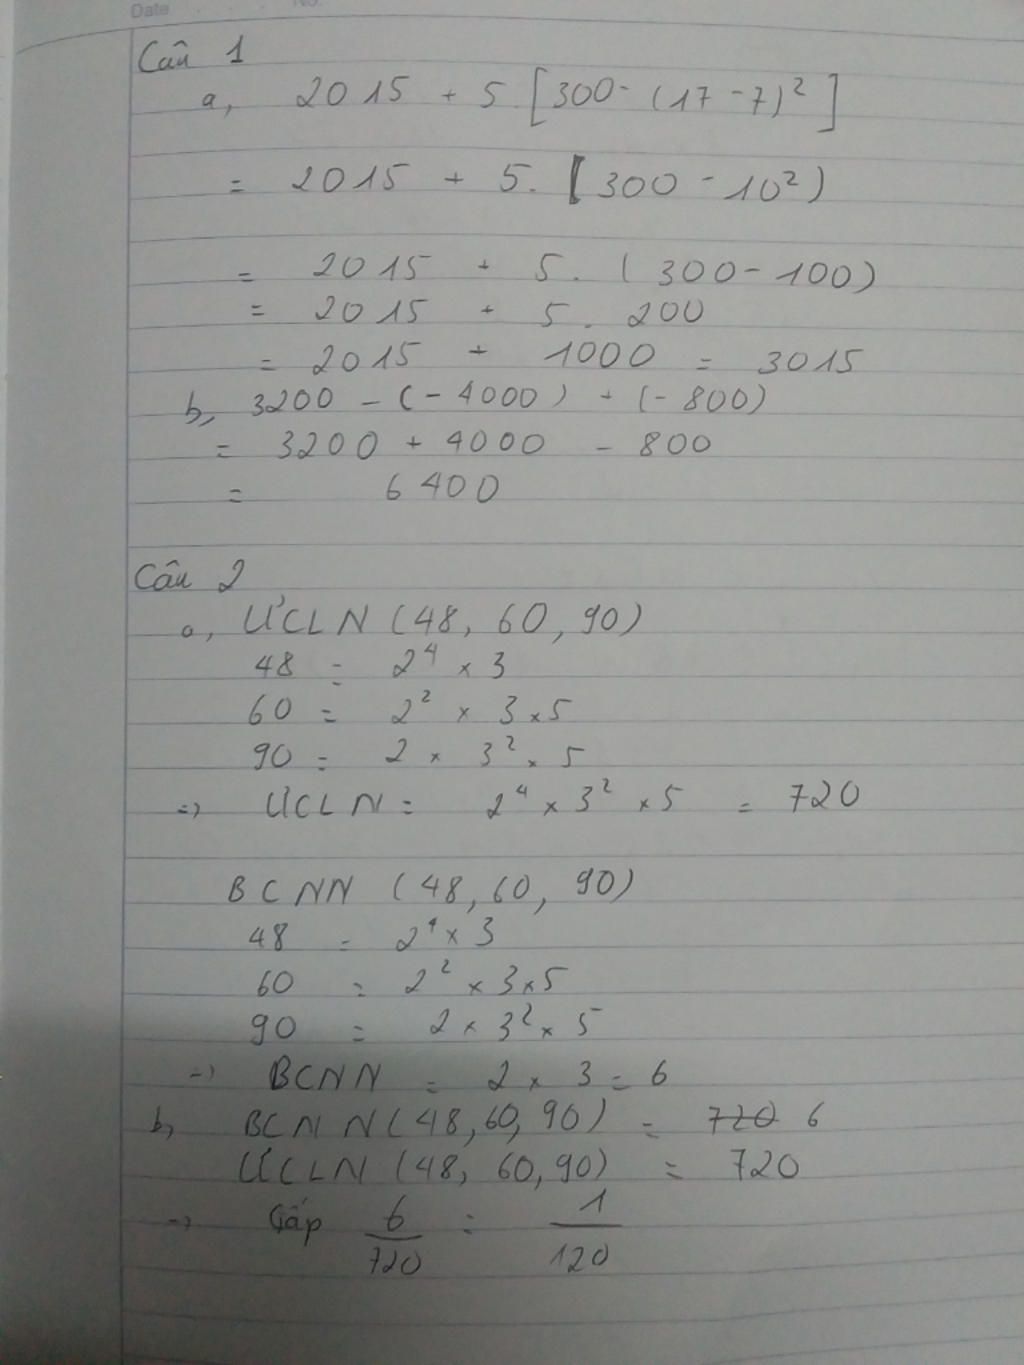 Date No.
Câu 1
a, 2015 + 5.[300 - (17 - 7)²]
= 2015 + 5. [300 - 10²)
= 2015 + 5. (300 - 100)
= 2015 + 5. 200
= 2015 + 1000 = 3015
b, 3200 - (- 4000) + (- 800)
= 3200 + 4000 - 800
= 6400
Câu 2
a, ƯCLN (48, 60, 90)
48 = 2⁴ × 3
60 = 2² × 3 × 5
90 = 2 × 3² × 5
=> ƯCLN = 2⁴ × 3² × 5 = 720
BCNN (48, 60, 90)
48 = 2⁴ × 3
60 = 2² × 3 × 5
90 = 2 × 3² × 5
=> BCNN = 2 × 3 = 6
b, BCNN (48, 60, 90) = 720 6
ƯCLN (48, 60, 90) = 720
=> Gấp 6/720 = 1/120